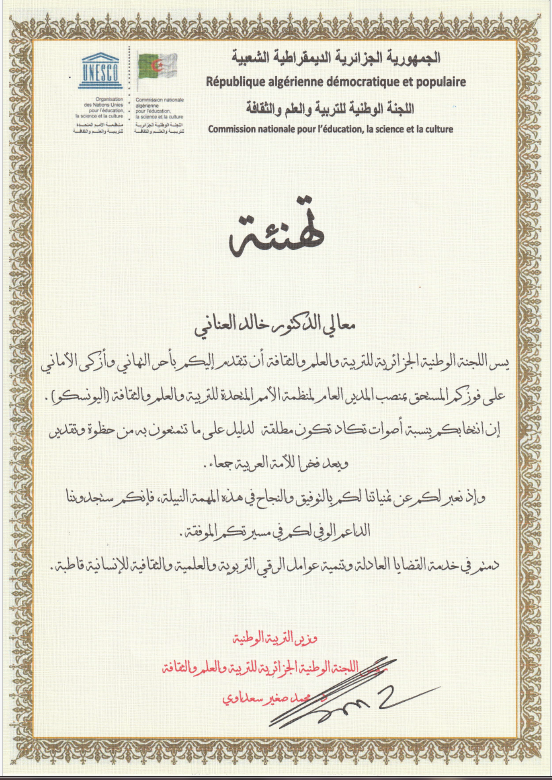 الجمهورية الجزائرية الديمقراطية الشعبية
République algérienne démocratique et populaire
اللجنة الوطنية للتربية والعلم والثقافة
Commission nationale pour l'éducation, la science et la culture
UNESCO
Organisation
des Nations Unies
pour l'éducation,
la science et la culture
منظمة الأمم المتحدة
للتربية والعلم والثقافة
Commission nationale
algérienne
pour l'éducation,
la science et la culture
اللجنة الوطنية الجزائرية
للتربية والعلم والثقافة
تهنئة
معالي الدكتور خالد العناني
يسر اللجنة الوطنية الجزائرية للتربية والعلم والثقافة أن تتقدم إليكم بأحر التهاني وأزكى الأماني
على فوزكم المستحق بمنصب المدير العام لمنظمة الأمم المتحدة للتربية والعلم والثقافة (اليونسكو) .
إن انتخابكم بنسبة أصوات تكاد تكون مطلقة لدليل على ما تتمتعون به من حظوة وتقدير
ويعد فخرا للأمة العربية جمعاء .
وإذ نعبر لكم عن تمنياتنا لكم بالتوفيق والنجاح في هذه المهمة النبيلة، فإنكم ستجدوننا
الداعم الوفي لكم في مسيرتكم الموفقة .
دمتم في خدمة القضايا العادلة وتنمية عوامل الرقي التربوية والعلمية والثقافية للإنسانية قاطبة .
وزير التربية الوطنية
رئيس اللجنة الوطنية الجزائرية للتربية والعلم والثقافة
د. محمد صغير سعداوي